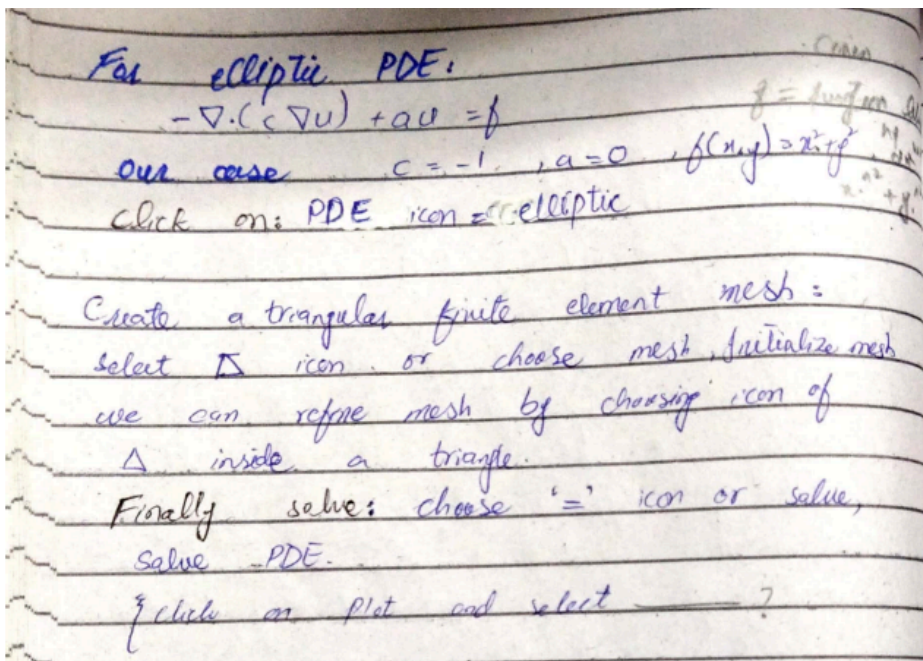 For elliptic PDE:
-∇.(c∇u) + au = f
our case c = -1, a = 0, f(x,y) = x²+y²
click on: PDE icon = elliptic
Create a triangular finite element mesh:
select △ icon or choose mesh, Initialize mesh
we can refine mesh by choosing icon of
△ inside a triangle.
Finally solve: choose '=' icon or solve,
solve PDE.
{click on Plot and select ______ ?